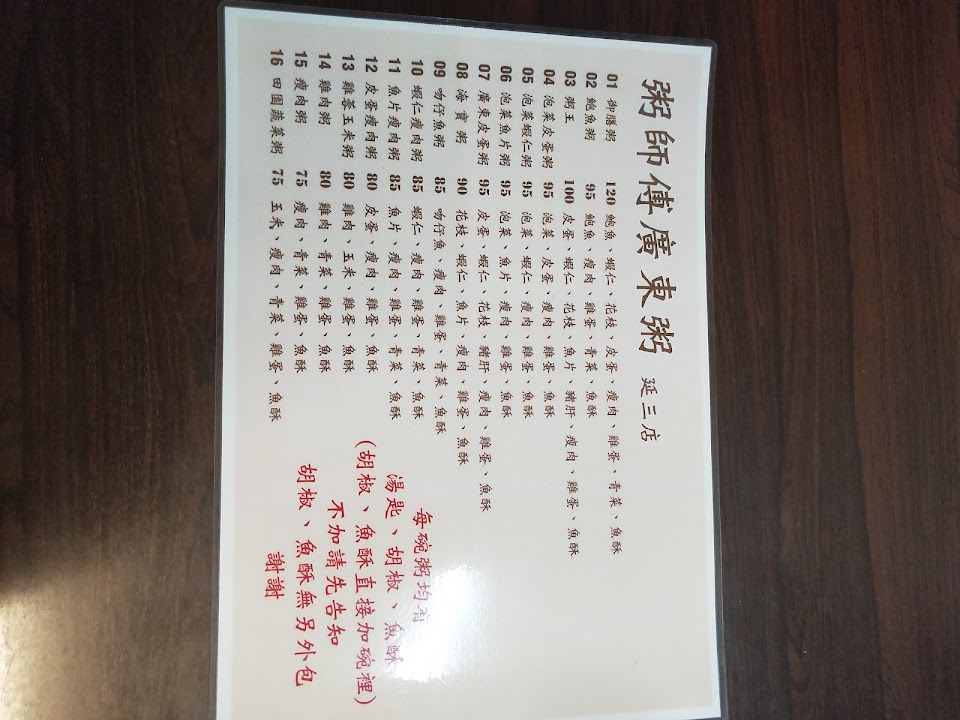 粥師傅廣東粥 延三店
01 御膳粥 120 鮑魚、蝦仁、花枝、皮蛋、瘦肉、雞蛋、青菜、魚酥
02 鮑魚粥 95 鮑魚、瘦肉、雞蛋、青菜、魚酥
03 粥王 100 皮蛋、蝦仁、花枝、魚片、豬肝、瘦肉、雞蛋、魚酥
04 泡菜皮蛋粥 95 泡菜、皮蛋、瘦肉、雞蛋、魚酥
05 泡菜蝦仁粥 95 泡菜、蝦仁、瘦肉、雞蛋、魚酥
06 泡菜魚片粥 95 泡菜、魚片、瘦肉、雞蛋、魚酥
07 廣東皮蛋粥 95 皮蛋、蝦仁、花枝、豬肝、瘦肉、雞蛋、魚酥
08 海寶粥 90 花枝、蝦仁、魚片、瘦肉、雞蛋、魚酥
09 吻仔魚粥 85 吻仔魚、瘦肉、雞蛋、青菜、魚酥
10 蝦仁瘦肉粥 85 蝦仁、瘦肉、雞蛋、青菜、魚酥
11 魚片瘦肉粥 85 魚片、瘦肉、雞蛋、青菜、魚酥
12 皮蛋瘦肉粥 80 皮蛋、瘦肉、雞蛋、魚酥
13 雞蓉玉米粥 80 雞肉、玉米、雞蛋、魚酥
14 雞肉粥 80 雞肉、青菜、雞蛋、魚酥
15 瘦肉粥 75 瘦肉、青菜、雞蛋、魚酥
16 田園蔬菜粥 75 玉米、瘦肉、青菜、雞蛋、魚酥
每碗粥均有
湯匙、胡椒、魚酥
(胡椒、魚酥直接加碗裡)
不加請先告知
胡椒、魚酥無另外包
謝謝